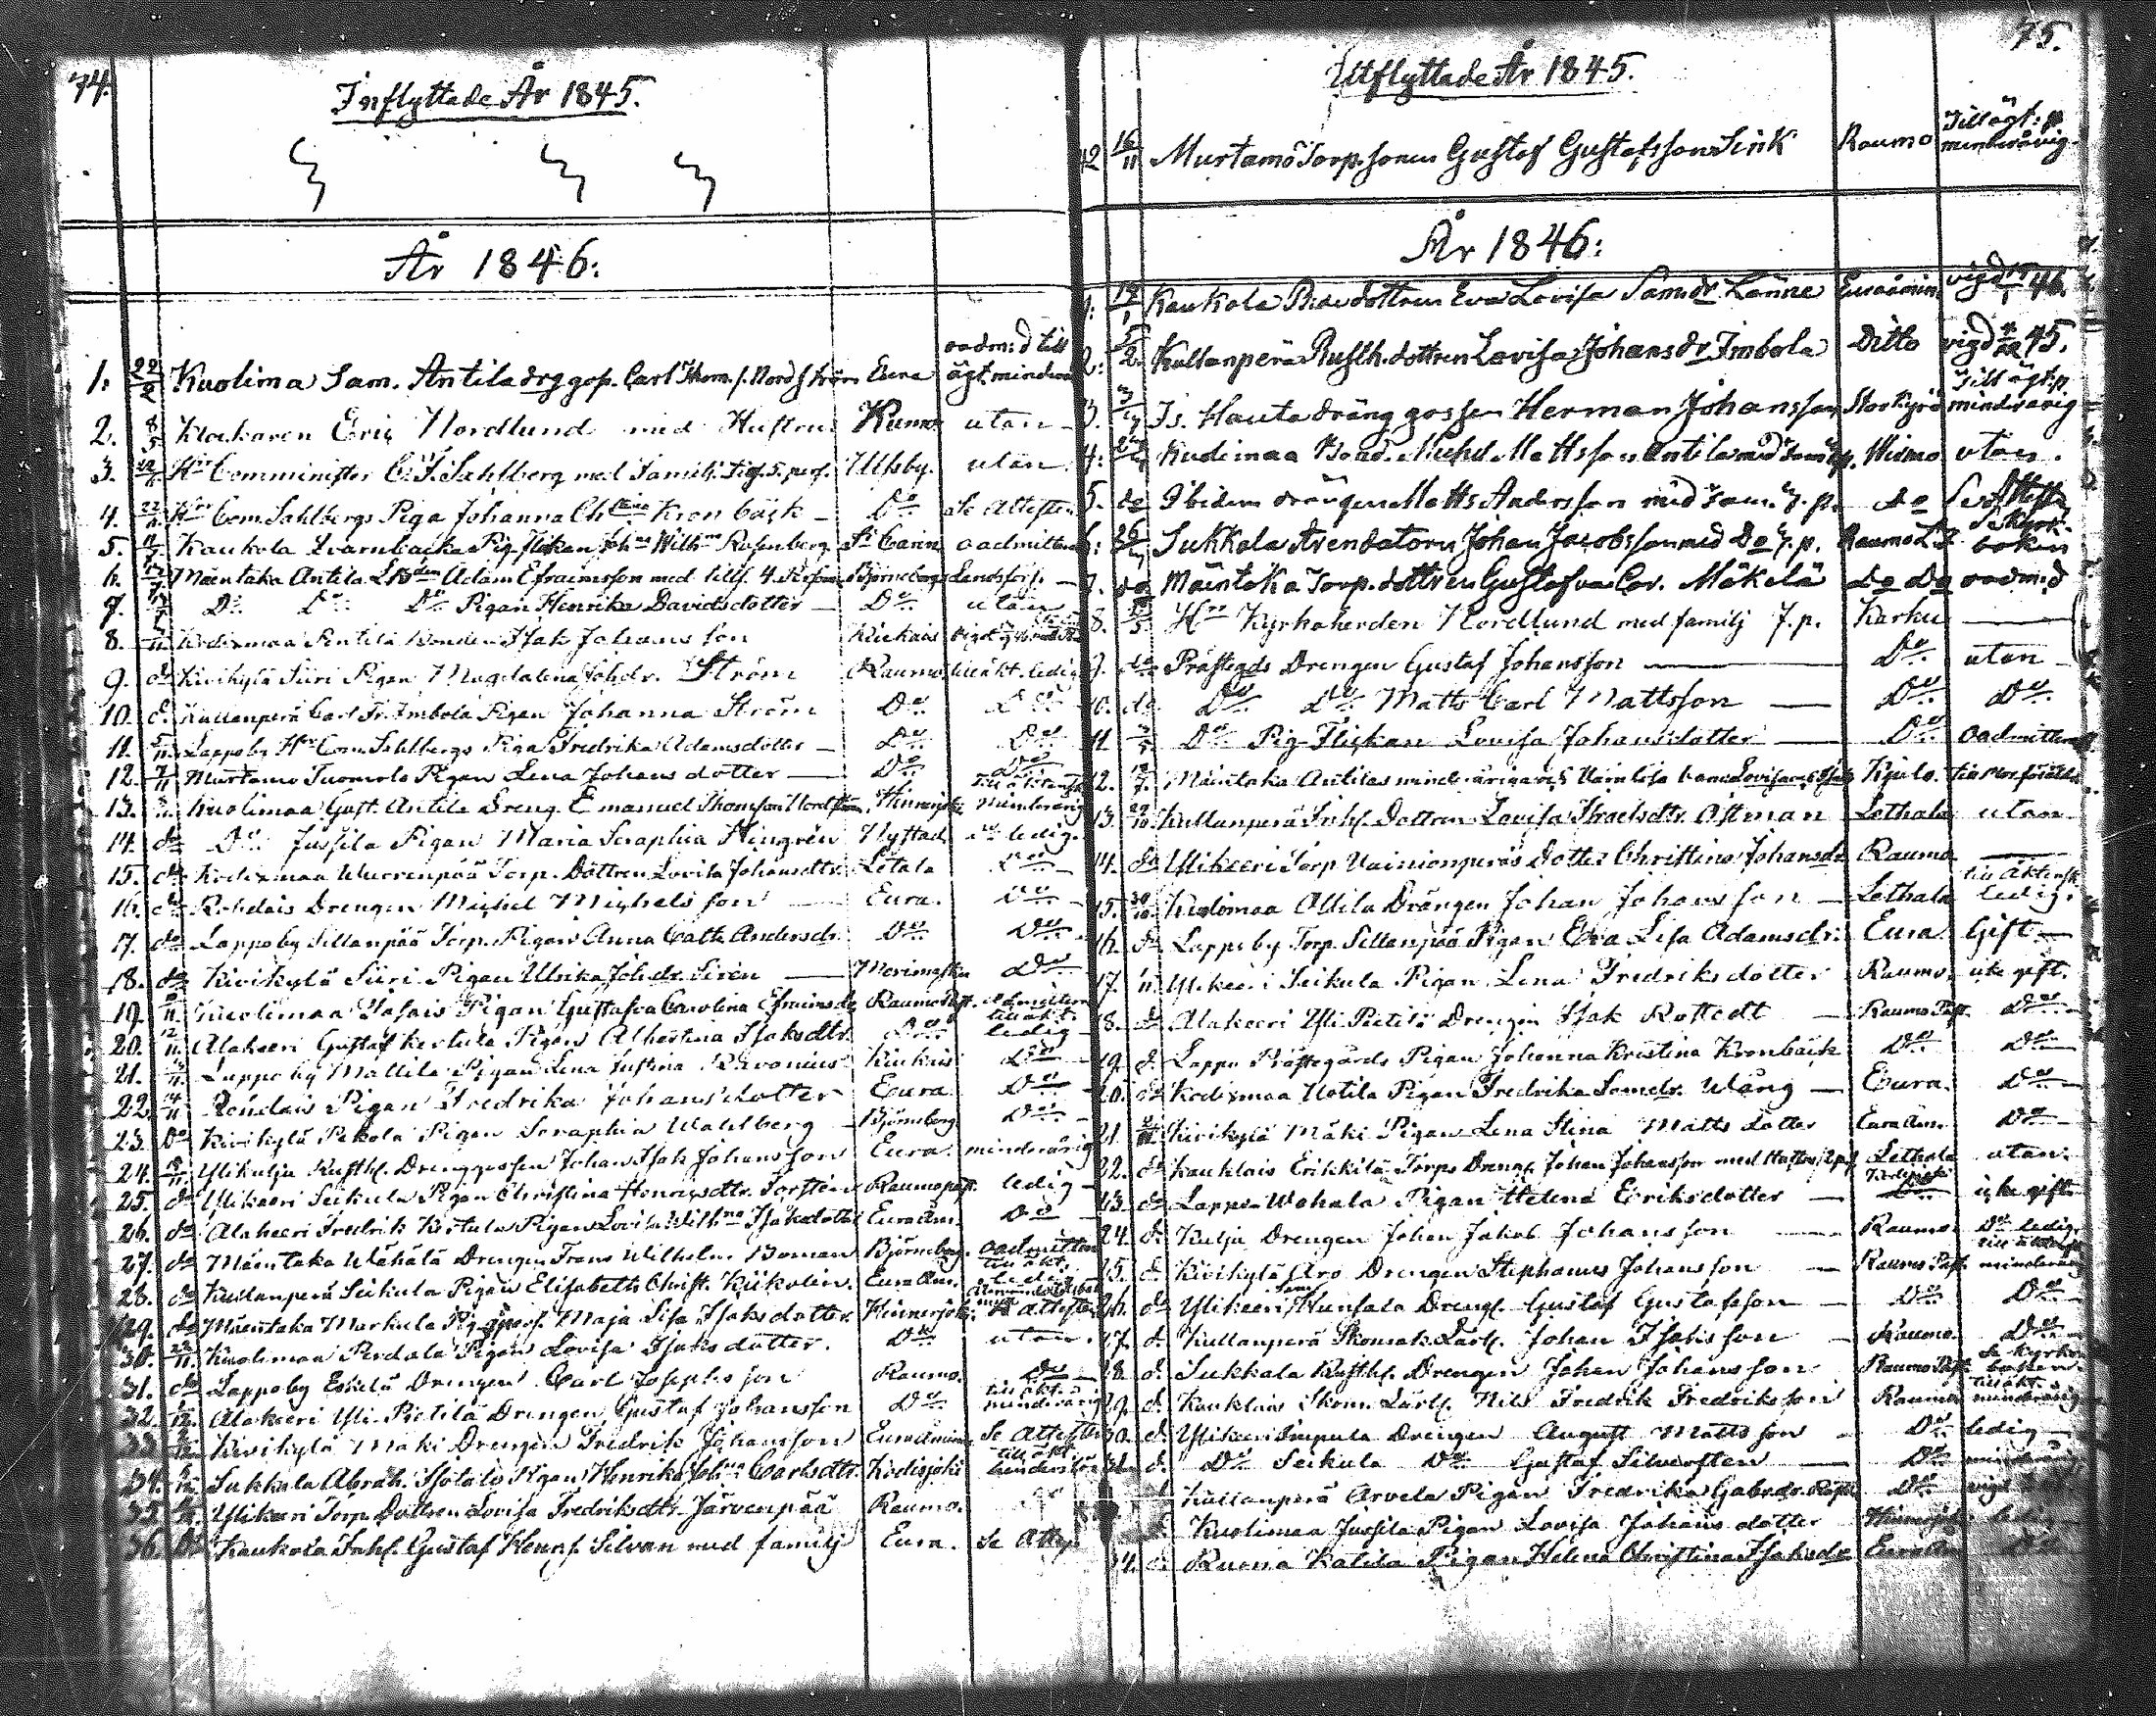 74.
Inflyttade År 1845.
År 1846:
oadm:d till
1. 22/2 Kuolima Sam. Antila drg gos. Carl Thom. s. Nordström Eura ägt. mindrea
2. 8/5 Klockaren Eric Nordlund med Hustru Kumo utan
3. Hrr Comminister C. F. Sahlberg med Familj Tils. 5. pers. Ulfsby. utan
4. 22/11 Hrr Com. Sahlbergs Piga Johanna Chstina Kronbäck Do Se Attesten
5. Kaukola Qvarnbacka Pig flickan Joha Wilhna Rosenberg St Carin oadmitterad
6. Mäentaka Antila Adam Efraimsson med tills. 4. Personer Björneborgs Landsförs.
7. Do Do Do Pigan Henrika Davidsdotter Do utan
8. Kodixmaa Pentilä Bonden Isak Johansson Kiukais
9. do Kivikylä Siiri Pigan Magdalena Johdr. Ström Raumo till äkt. ledig
10. do Kullanperä Carl Fr. Imbola Pigan Johanna Ström Do Do
11. 5/11 Lappo by Hrr Com. Sahlbergs Piga Fredrika Adamsdotter Do Do
12. 7/11 Murtamo Tuomola Pigan Lena Johansdotter Do Do
13. Kuolimaa Gust. Antila Dreng. Emanuel Thomsson Nordström Hinnerjoki minderårig
14. do Do Jussila Pigan Maria Seraphia Mingrén Nystad ledig.
15. do Kodixmaa Wuorenpää Torp. Dottren Lovisa Johansdtr. Letala Do
16. do Rohdais Drengen Michel Michelsson Eura. Do
17. do Lappo by Sillanpää Torp. Pigan Anna Cath. Andersdr. Do Do
18. do Kivikylä Siiri Pigan Ulrika Johdr. Sirén Merimasku Do
19. Kuolimaa Pigan Gustafva Carolina Efraimsdr Raumo Past. admitterad
till äkt.
20. 12/11 Alakeeri Gustaf Kertula Pigan Albertina Isaksdtr. Do ledig
21. Lappo by Mattila Pigan Lena Justina Kiukais Do
22. 14/11 Rohdais Pigan Fredrika Johansdotter Eura Do
23. Do Kivikylä Pekola Pigan Seraphia Wahlberg Björneborg Do
24. Ylikulja Rusth. Drenggossen Johan Isak Johansson Eura. minderårig
25. do Ylikeeri Seikula Pigan Christina Henricsdtr. Torstén Raumo past. ledig
26. do Alakeeri Fredrik Kertula Pigan Lovisa Wilhna Isaksdotter Eura Åm. Do
27. do Mäentaka Wähälä Drengen Frans Wilhelm Boman Björneborg. oadmitterad
till äkt.
28. do Kullanperä Seikula Pigan Elisabeth Christ. Kiikolin. Eura Åm. ledig
29. do Mäentaka Markula Maja Lisa Isaksdotter. Hinnerjoki. Se Attesten
30. 22/11 Kuolimaa Perdala Pigan Lovisa Isaksdotter. Do utan.
31. do Lappo by Eskelä Drengen Carl Josephsson Raumo. Do
till äkt.
32. Alakeeri Yli-Pietilä Drengen Gustaf Johansson Do minderårig
33. Kivikylä Mäki Drengen Fredrik Johansson Euraåminne Se Attesten
till äkt.
34. Sukkala Abrah. Isotalo Pigan Henrika Joh:a Carlsdtr. Kodisjoki
35. Ylikeeri Torp. Dottren Lovisa Fredriksdtr. Järvenpää Raumo.
36. Do Kaukola Inh. Gustaf Henrs. Silvan med familj Eura. Se Attest
75.
Utflyttade År 1845.
Till ägt: p
42 16/11 Murtamo Torp. sonen Gustaf Gustafsson Sink Raumo minderårig.
År 1846:
1. Kaukola dottren Eva Lovisa Samdr Lönne Euraåmin. vigd 46.
2. Kullanperä Rusth. dottren Lovisa Johansdr Imbola Ditto vigd 45.
Till ägt. p
3. Is. Hauta dräng gossen Herman Johansson Storkyro mindrårig
4. Kuolimaa Bond. Michel Mattsson Antila med Wirmo utan.
5. do Ibidem drängen Matts Andersson med fam. 7. p. do Se Attesten
Se Kyrk-
6. Sukkala Arendatorn Johan Jacobsson med Do 7. p. Raumo L. boken
7. do Mäntaka Torp. dottren Gustafva Car. Mäkelä do do oadm:d
8. Hrr Kyrkoherden Nordlund med familj 7. p. Karku
9. do Prästgds Drengen Gustaf Johansson Do utan
10. do Do Do Matts Carl Mattsson Do Do
11. Do Pig-Flickan Lovisa Johansdotter Do oadmitterad
12. Mäntaka Antilas minderåriga Kjulo.
13. 29/10 Kullanperä Inh. Dottren Lovisa Isaksdtr. Östman Lethala utan
14. do Ylikeeri Torp Vainionperäs Dotter Christina Johansdr. Raumo
till Äktensk.
15. 30/10 Kuolimaa Ollila Drängen Johan Johansson Lethala ledig.
16. do Lappo by Torp. Sillanpää Pigan Eva Lisa Adamsdr. Eura Gift.
17. Ylikeeri Seikula Pigan Lena Fredriksdotter Raumo. icke gift.
18. do Alakeeri Yli Pietilä Drengen Isak Rostedt Raumo Past. Do
19. do Lappo Prästegårds Pigan Johanna Kristina Kronbäck Do Do
20. do Kodixmaa Uotila Pigan Fredrika Samdr. Wång Eura. Do
21. Kivikylä Mäki Pigan Lena Stina Mattsdotter Eura Åm. Do
22. do Kauklais Erikkilä Torps Dreng. Johan Johansson med Hustru, 2 ps. Lethala utan.
Kodisjoki
23. do Lappo Wähälä Pigan Helena Eriksdotter icke gift
24. do Kulja Drengen Johan Jakob Johansson Raumo. Do ledig.
till äktensk.
25. do Kivikylä Aro Drengen Stephanus Johansson Raumo Past. minderårig
26. do Ylikeeri Hunsala Dreng. Gustaf Gustafsson Do Do
27. do Kullanperä Skomak. Lärl. Johan Isaksson Raumo. Do
Se Kyrko
28. do Sukkala Rusth. Drengen Johan Johansson Raumo Past. boken.
till äkt.
29. do Kauklais Skom. Lärl. Nils Fredrik Fredriksson Raumo minderårig
30. do Ylikeeri Impula Drengen August Mattsson Do ledig
31. do Do Seikula Do Gustaf Silversten Do minderårig
do Kullanperä Arvela Pigan Fredrika Gabrdr. Do vigd
do Kuolimaa Jussila Pigan Lovisa Johansdotter Hinnerjoki ledig
34. do Ruona Katila Pigan Helena Christina Isaksdr Eura Åm. Do